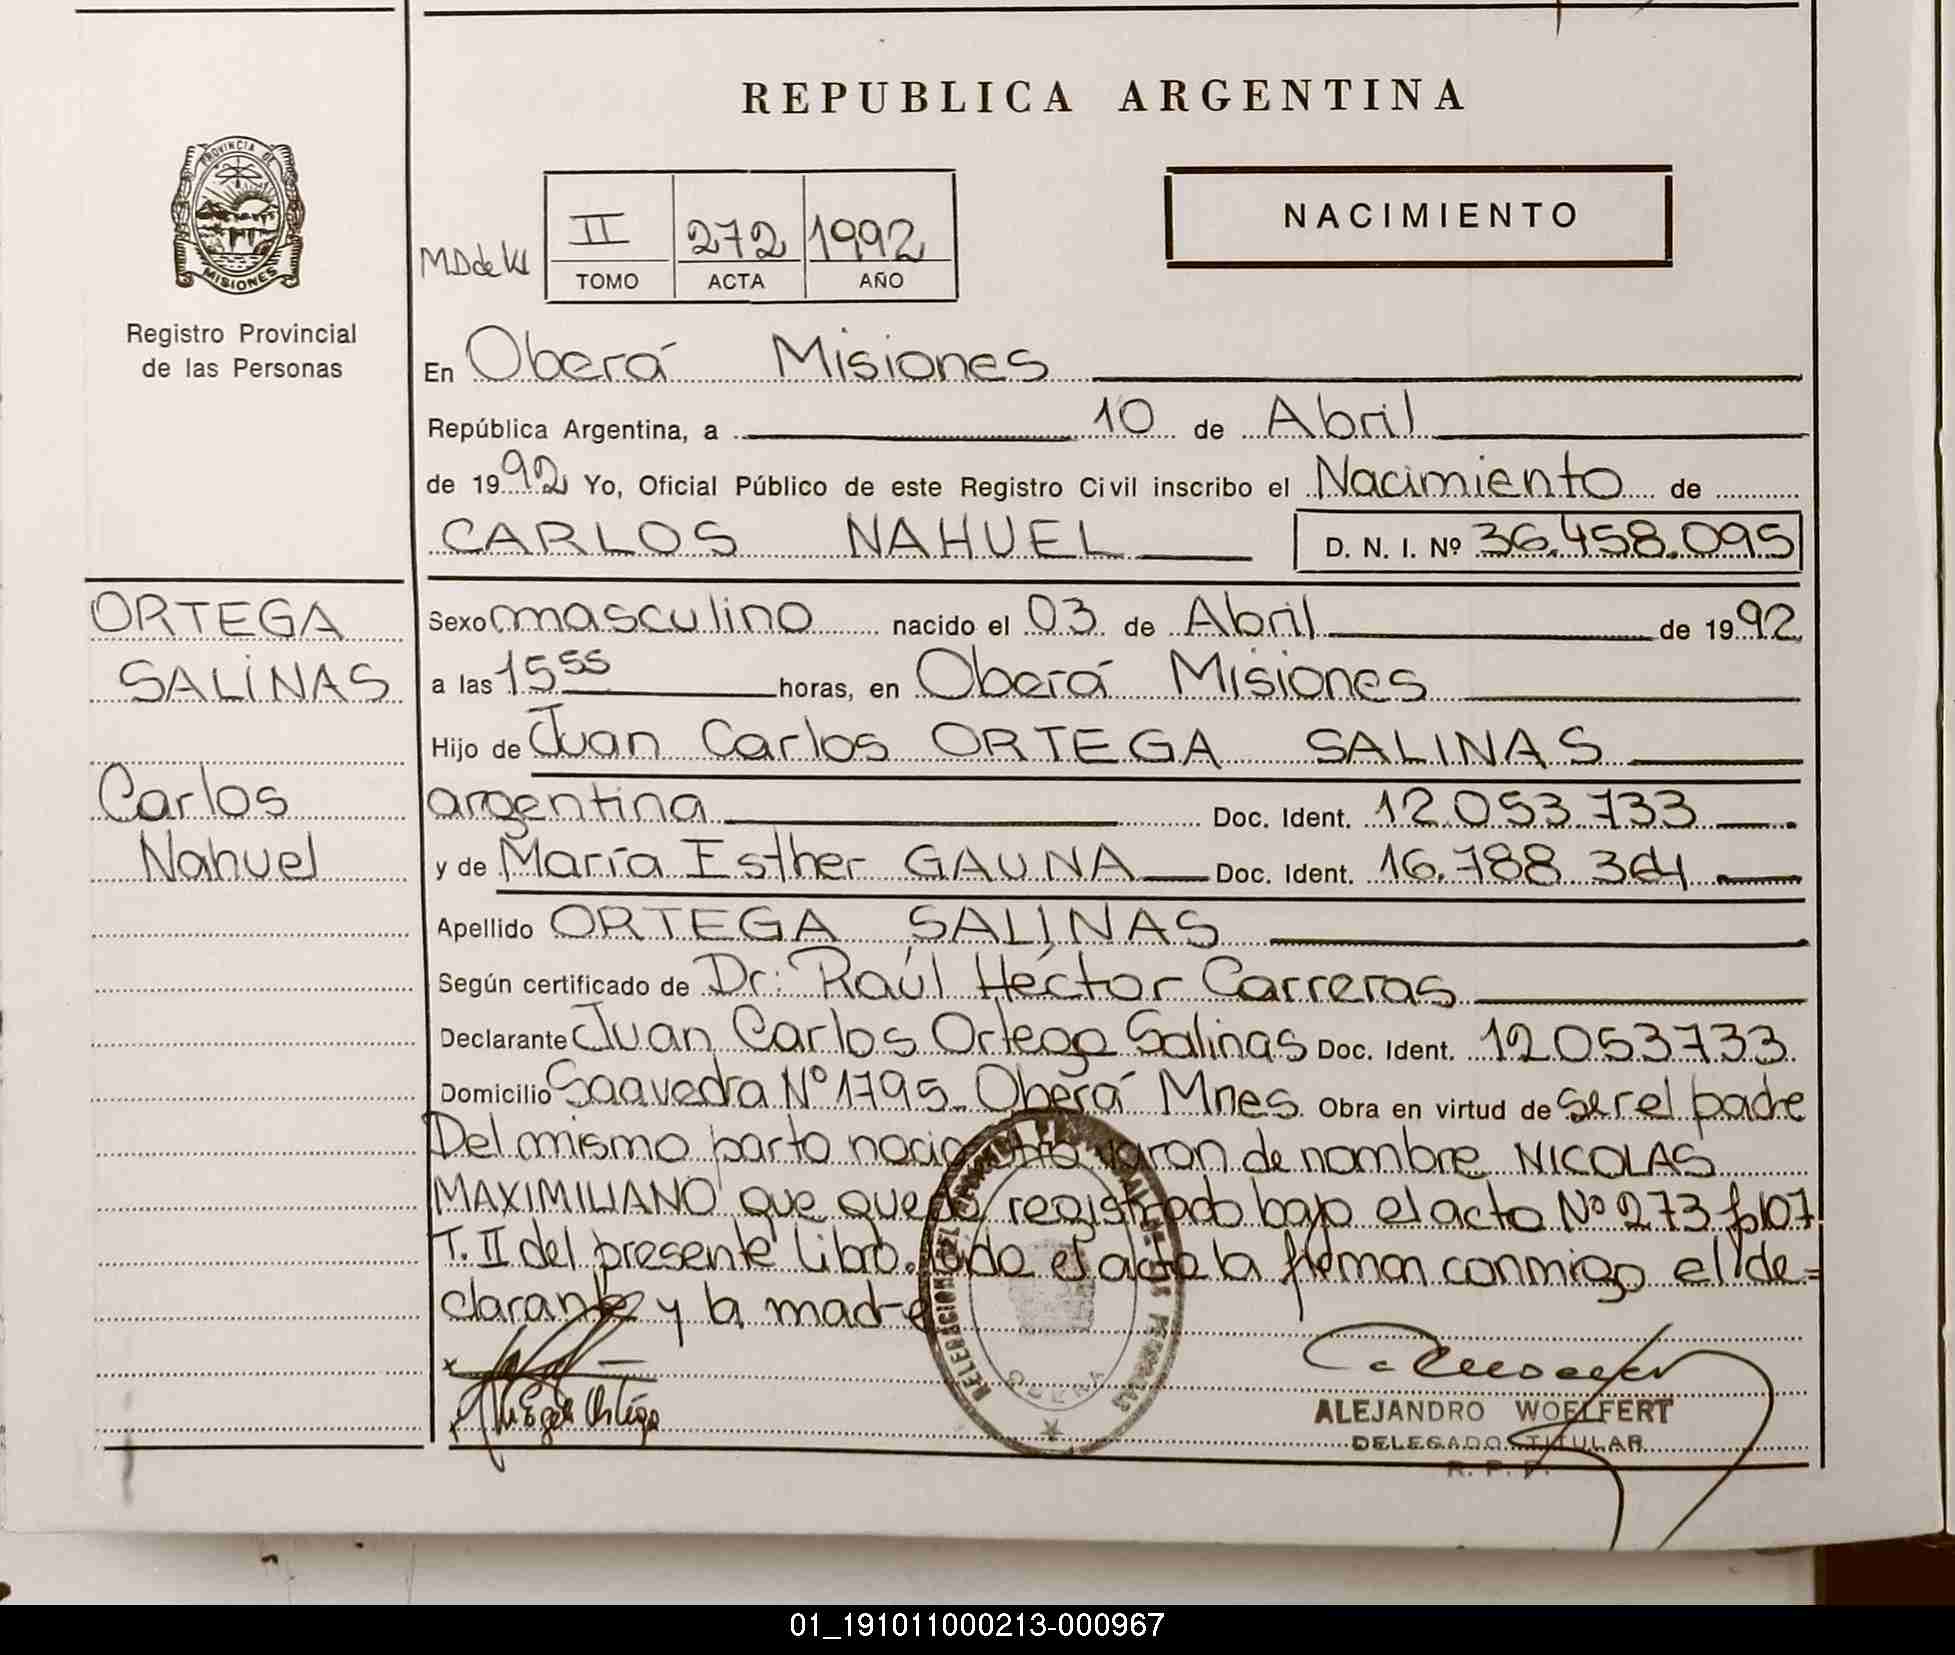 REPUBLICA ARGENTINA
PROVINCIA DE
MISIONES
Registro Provincial
de las Personas
NACIMIENTO
II 272 1992
TOMO ACTA AÑO
En Oberá Misiones
República Argentina, a 10 de Abril
de 1992 Yo, Oficial Público de este Registro Civil inscribo el Nacimiento de
CARLOS NAHUEL D. N. I. Nº 36.458.095
ORTEGA
SALINAS
Carlos
Nahuel
Sexo masculino nacido el 03 de Abril de 1992
a las 15 55 horas, en Oberá Misiones
Hijo de Juan Carlos ORTEGA SALINAS
argentina Doc. Ident. 12.053.733
y de María Esther GAUNA Doc. Ident. 16.788 364
Apellido ORTEGA SALINAS
Según certificado de Dr: Raúl Héctor Carreras
Declarante Juan Carlos Ortega Salinas Doc. Ident. 12053733
Domicilio Saavedra Nº 1795 Oberá Mnes. Obra en virtud de ser el padre
Del mismo parto nacio otro varon de nombre NICOLAS
MAXIMILIANO que quedo registrado bajo el acta Nº 273 fº 107
T. II del presente libro. Leida el acta la firman conmigo el de=
clarante y la madre
ALEJANDRO WOELFERT
DELEGADO TITULAR
R. P. P.
01_191011000213-000967